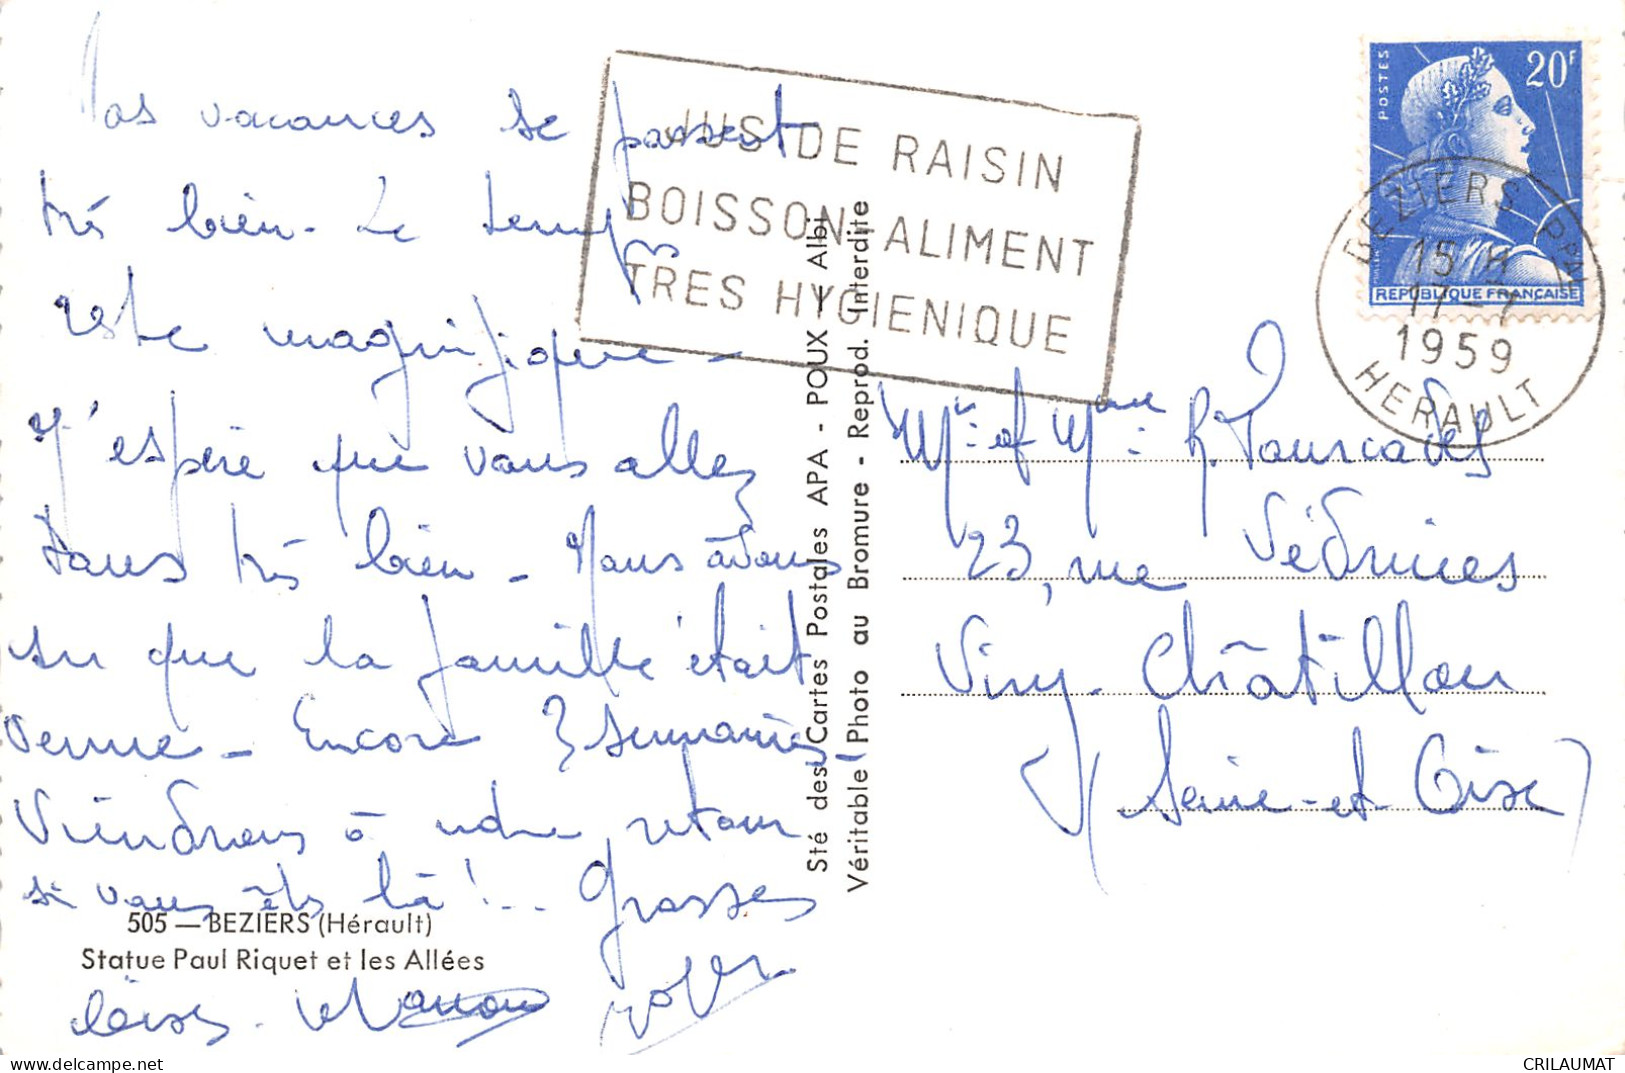 Nos vacances se passent
très bien - Le temps
reste magnifique -
J'espère que vous allez
tous très bien - Nous avons
su que la famille était
venue - Encore 3 semaines
Viendrons à notre retour
si vous êtes là !... Grosses
bises -
505 — BEZIERS (Hérault)
Statue Paul Riquet et les Allées
JUS DE RAISIN
BOISSON-ALIMENT
TRES HYGIENIQUE
Sté des Cartes Postales APA - POUX - Albi
Véritable Photo au Bromure - Reprod. Interdite
POSTES
20F
REPUBLIQUE FRANÇAISE
BEZIERS PPAL
15 H
17-7
1959
HERAULT
Mr et Mme R. Fourcades
23, rue Védrines
Viry-Châtillon
(Seine-et-Oise)
delcampe.net
CRILAUMAT